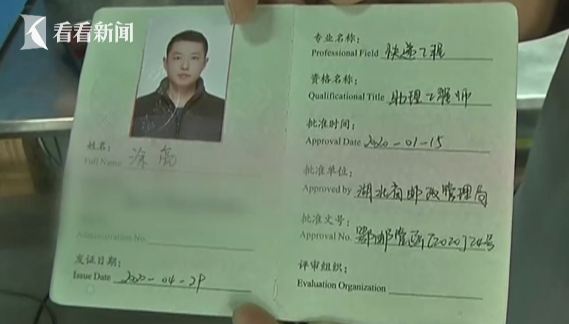 看看新闻
姓名:
Full Name 涂勇
Administration No.
发证日期:
Issue Date 2020-04-29
专业名称:
Professional Field 快递工程
资格名称:
Qualificational Title 助理工程师
批准时间:
Approval Date 2020-01-15
批准单位:
Approved by 湖北省邮政管理局
批准文号:
Approval No. 鄂邮管函[2020]24号
评审组织:
Evaluation Organization